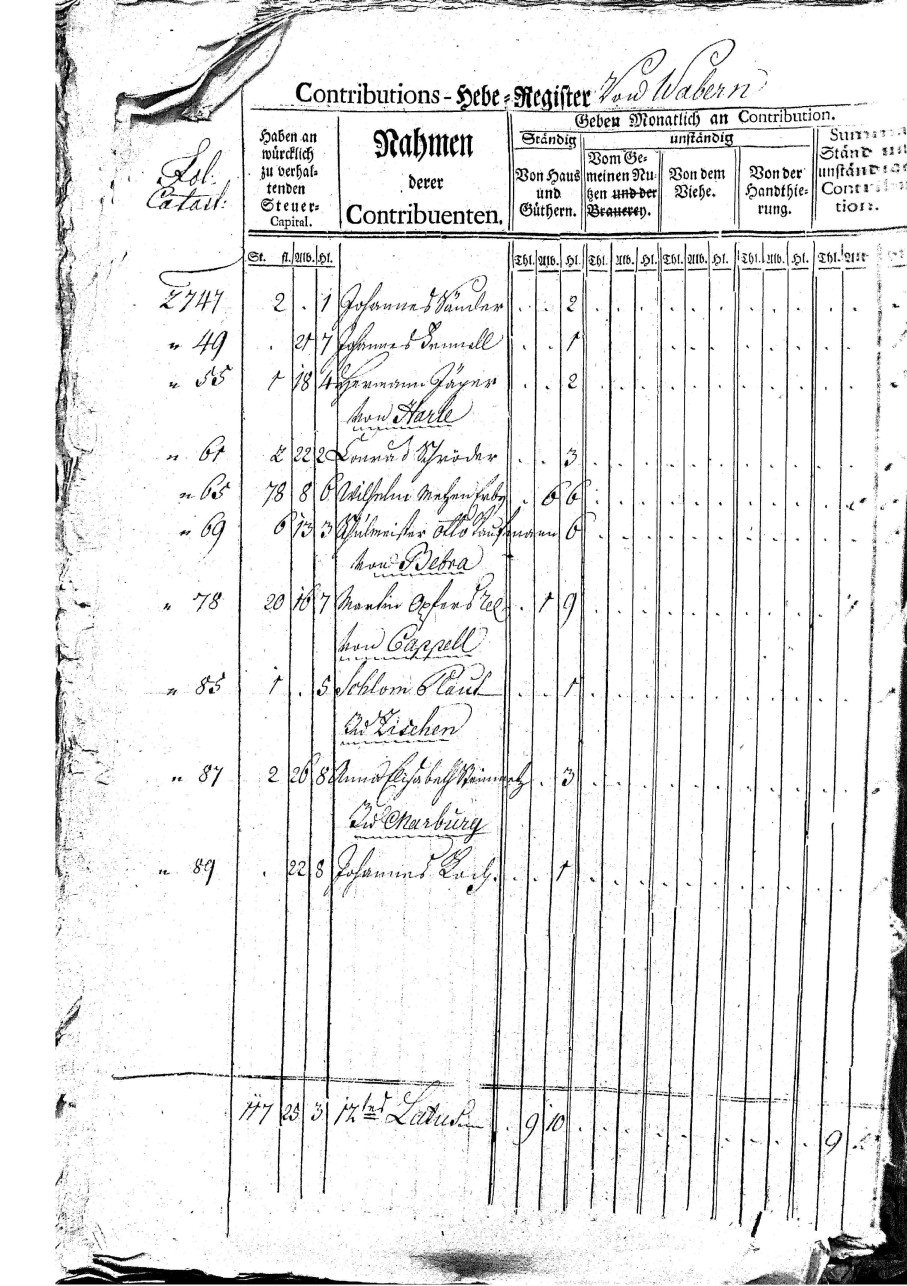 Contributions-Hebe-Register Von Wabern
Fol. Catast:
Haben an würcklich zu verhaltenden Steuer-Capital.
Nahmen derer Contribuenten.
Geben Monatlich an Contribution.
Ständig unständig
Von Haus und Güthern.
Vom Gemeinen Nutzen und der Brauerey.
Von dem Viehe.
Von der Handthierung.
Summa Ständ und unständige Contribution.
St. fl. Alb. Hl. Thl. Alb. Hl. Thl. Alb. Hl. Thl. Alb. Hl. Thl. Alb. Hl. Thl. Alb.
2747 2 . 1 Johannes . . 2
" 49 . 21 7 Johannes . . 1
" 55 1 18 4 Hermann Jäger . . 2
von Harle
" 61 2 22 2 Conrad Schröder . . 3
" 65 78 8 6 Wilhelm . 6 6
" 69 6 13 3 Schulmeister Otto Kaufmann 6
von Bebra
" 78 20 16 7 Martin Opfers Rel . 1 9
von Cappell
" 85 1 . 5 Schlom Plaut . . 1
Zu Zischen
" 87 2 26 8 Anna Elisabeth . 3
Zu Marburg
" 89 . 22 8 Johannes Koch. . . 1
117 25 3 12tes Latus . 9 10 9